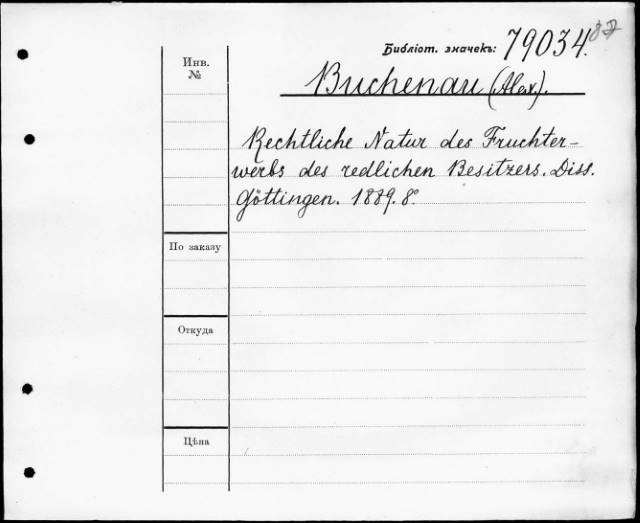 Библіот. значекъ: 79034.
Инв. №
Buchenau (Alex.).
Rechtliche Natur des Fruchter-
werbs des redlichen Besitzers. Diss.
Göttingen. 1889. 8°
По заказу
Откуда
Цѣна